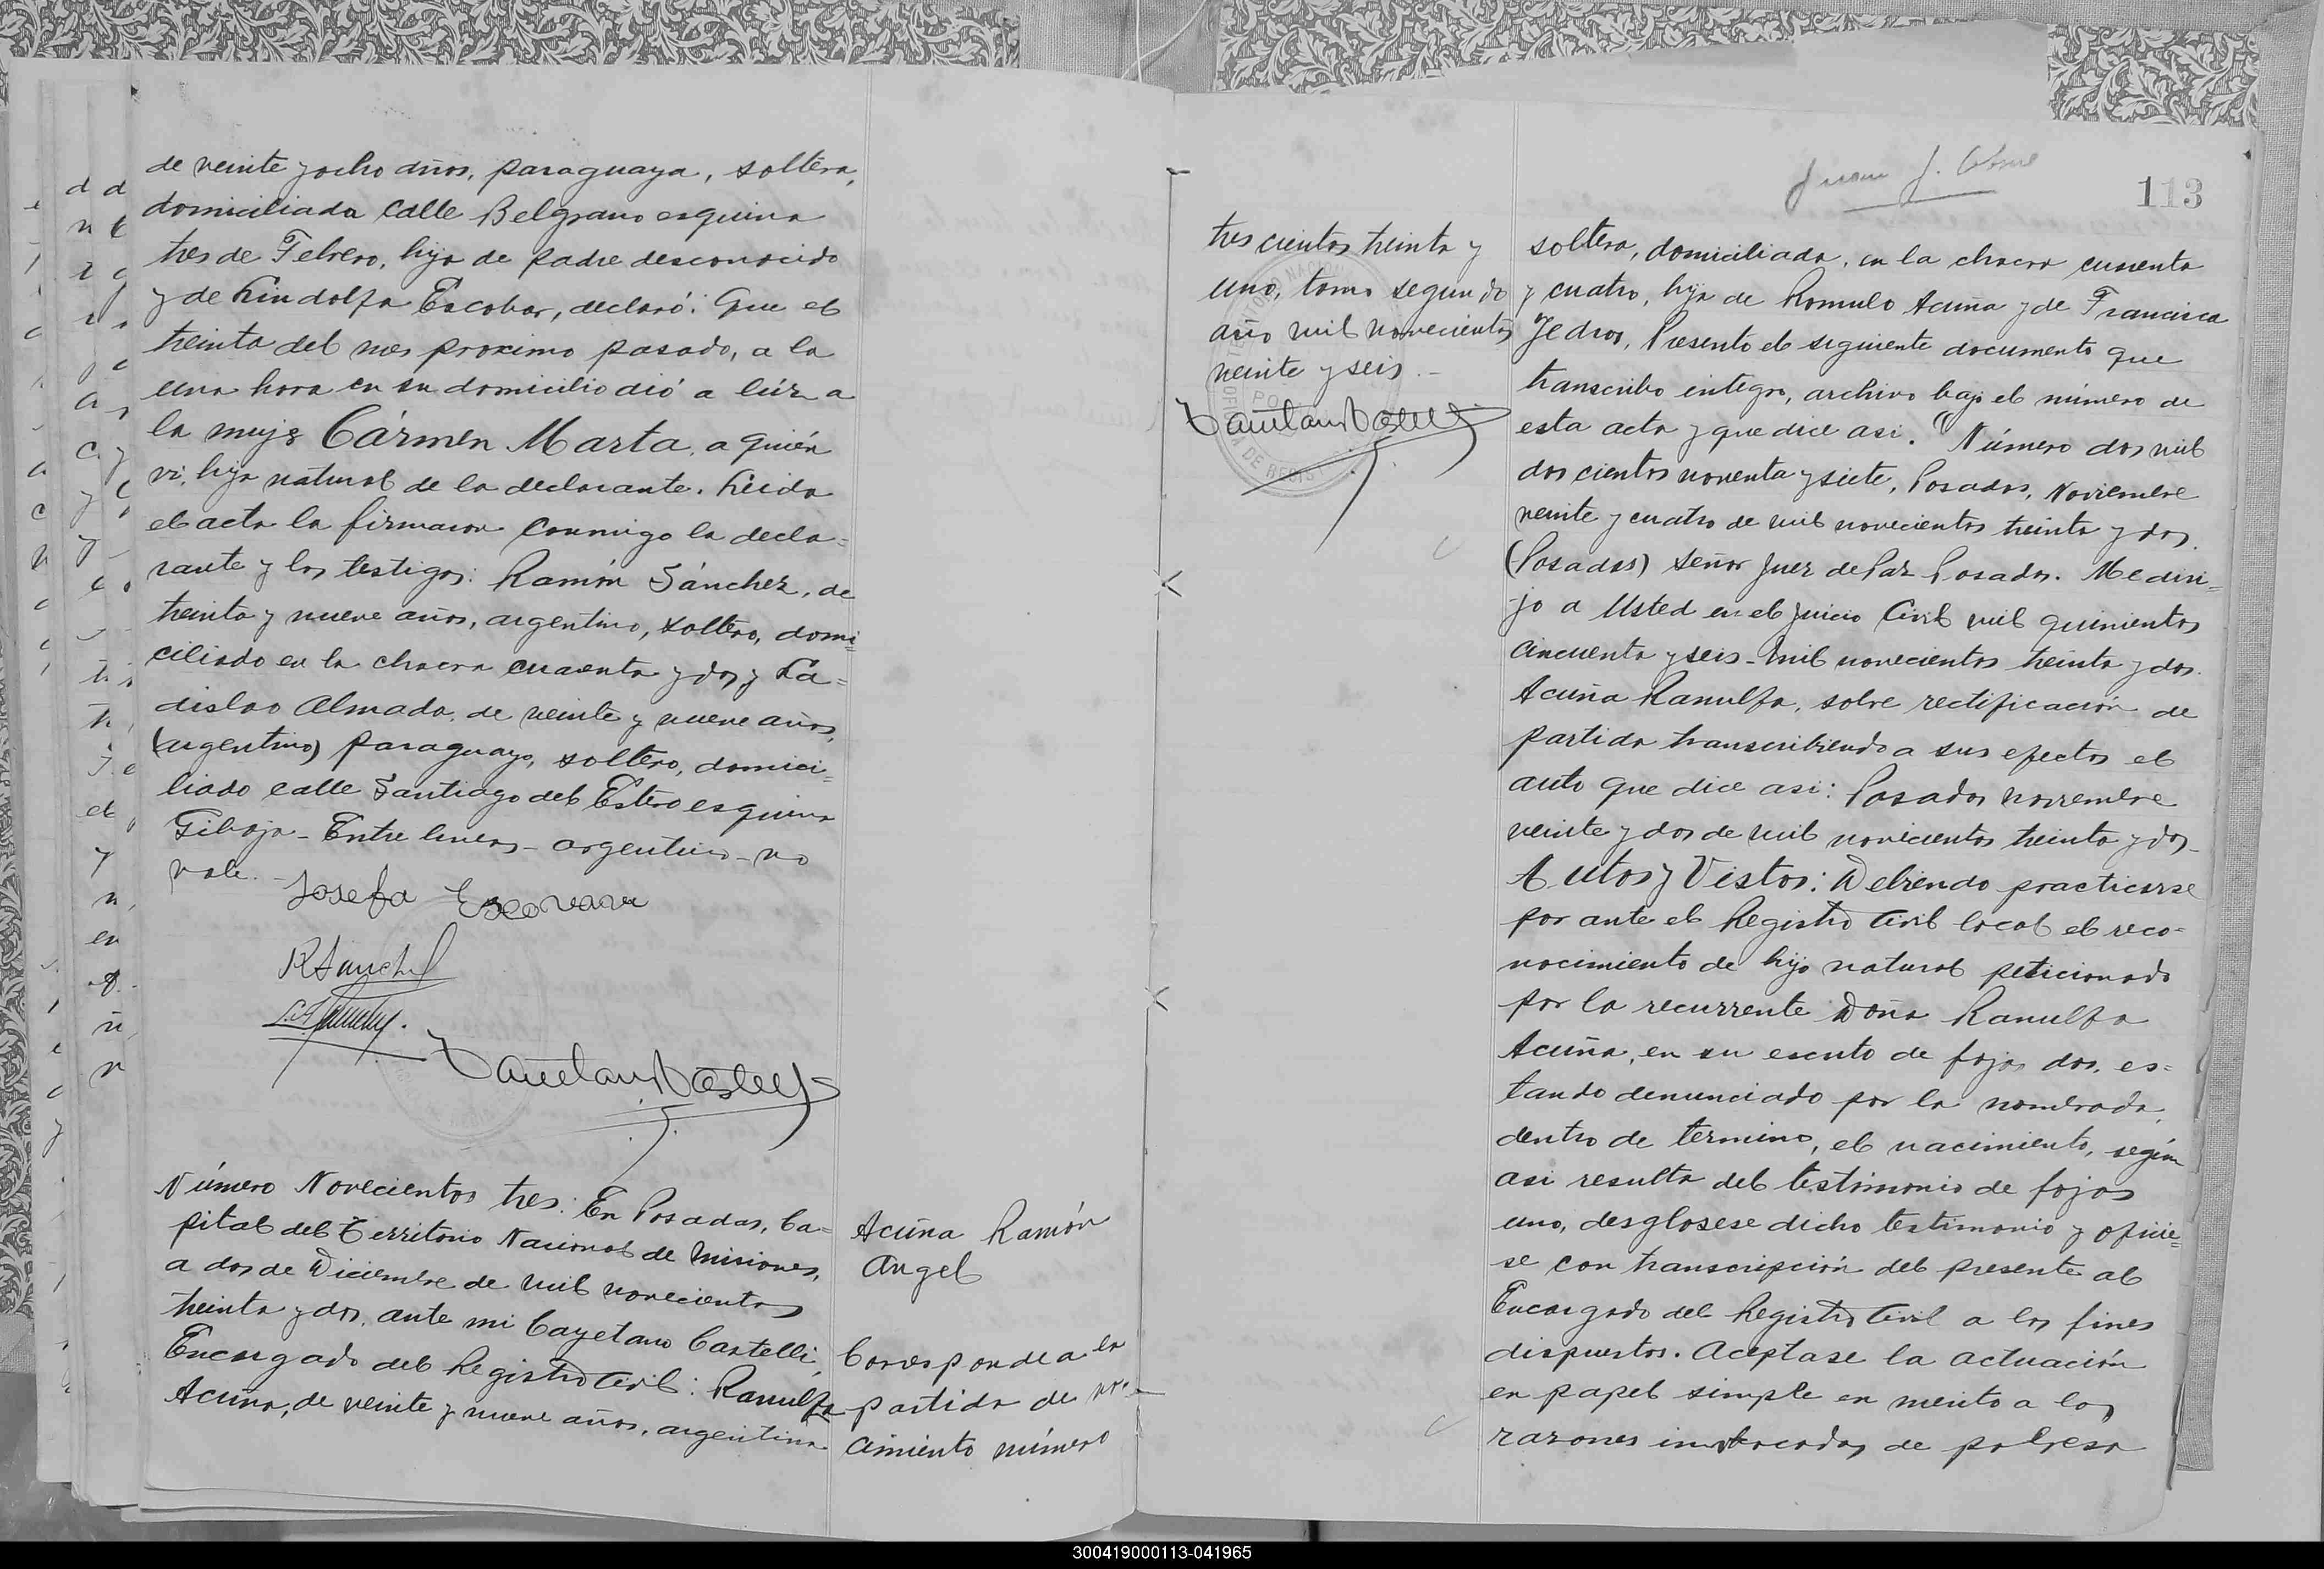 de veinte y ocho años, paraguaya, soltera,
domiciliada calle Belgrano esquina
tres de Febrero, hija de padre desconocido
y de Lindolfa Escobar, declaró: Que el
treinta del mes proximo pasado, a la
una hora en su domicilio dió a lúz a
la mujer Cármen Marta, a quién
vi, hija natural de la declarante. Leida
el acta la firmaron conmigo la decla=
rante y los testigos: Ramón Sánchez, de
treinta y nueve años, argentino, soltero, domi=
ciliado en la chacra cuarenta y dos y La=
dislao Almada, de veinte y nueve años,
(argentino) paraguayo, soltero, domici=
liado calle Santiago del Estero esquina
- Entre lineas - argentino - no
vale. -
Josefa Escovar
R Sanchez
Número Novecientos tres: En Posadas, Ca=
pital del Territorio Nacional de Misiones,
a dos de Diciembre de mil novecientos
treinta y dos, ante mi Cayetano Castelli,
Encargado del Registro Civil: Ranulfa
Acuña, de veinte y nueve años, argentina
Acuña Ramón
Angel
Corresponde a la
partida de na-
cimiento número
tres cientos treinta y
uno, tomo segundo
año mil novecientos
veinte y seis. -
113
soltera, domiciliada, en la chacra cuarenta
y cuatro, hija de Romulo Acuña y de Francisca
Presento el siguiente documento que
transcribo integro, archivo bajo el número de
esta acta y que dice asi. "Número dos mil
dos cientos noventa y siete, Posadas, Noviembre
veinte y cuatro de mil novecientos treinta y dos.
(Posadas) Señor Juez de Paz Posadas. Me diri=
jo a Usted en el juicio Civil mil quinientos
cincuenta y seis - mil novecientos treinta y dos.
Acuña Ranulfa, sobre rectificación de
partida transcribiendo a sus efectos el
auto que dice asi: Posadas noviembre
veinte y dos de mil novecientos treinta y dos -
Autos y Vistos: Debiendo practicarse
por ante el Registro Civil local el reco-
nocimiento de hijo natural peticionado
por la recurrente Doña Ranulfa
Acuña, en su escrito de fojas dos, es=
tando denunciado por la nombrada,
dentro de termino, el nacimiento, según
asi resulta del testimonio de fojas
uno, desglosese dicho testimonio y oficie=
se con transcripción del presente al
Encargado del Registro Civil a los fines
dispuestos. Aceptase la actuación
en papel simple en merito a las
razones invocadas de pobreza
300419000113-041965